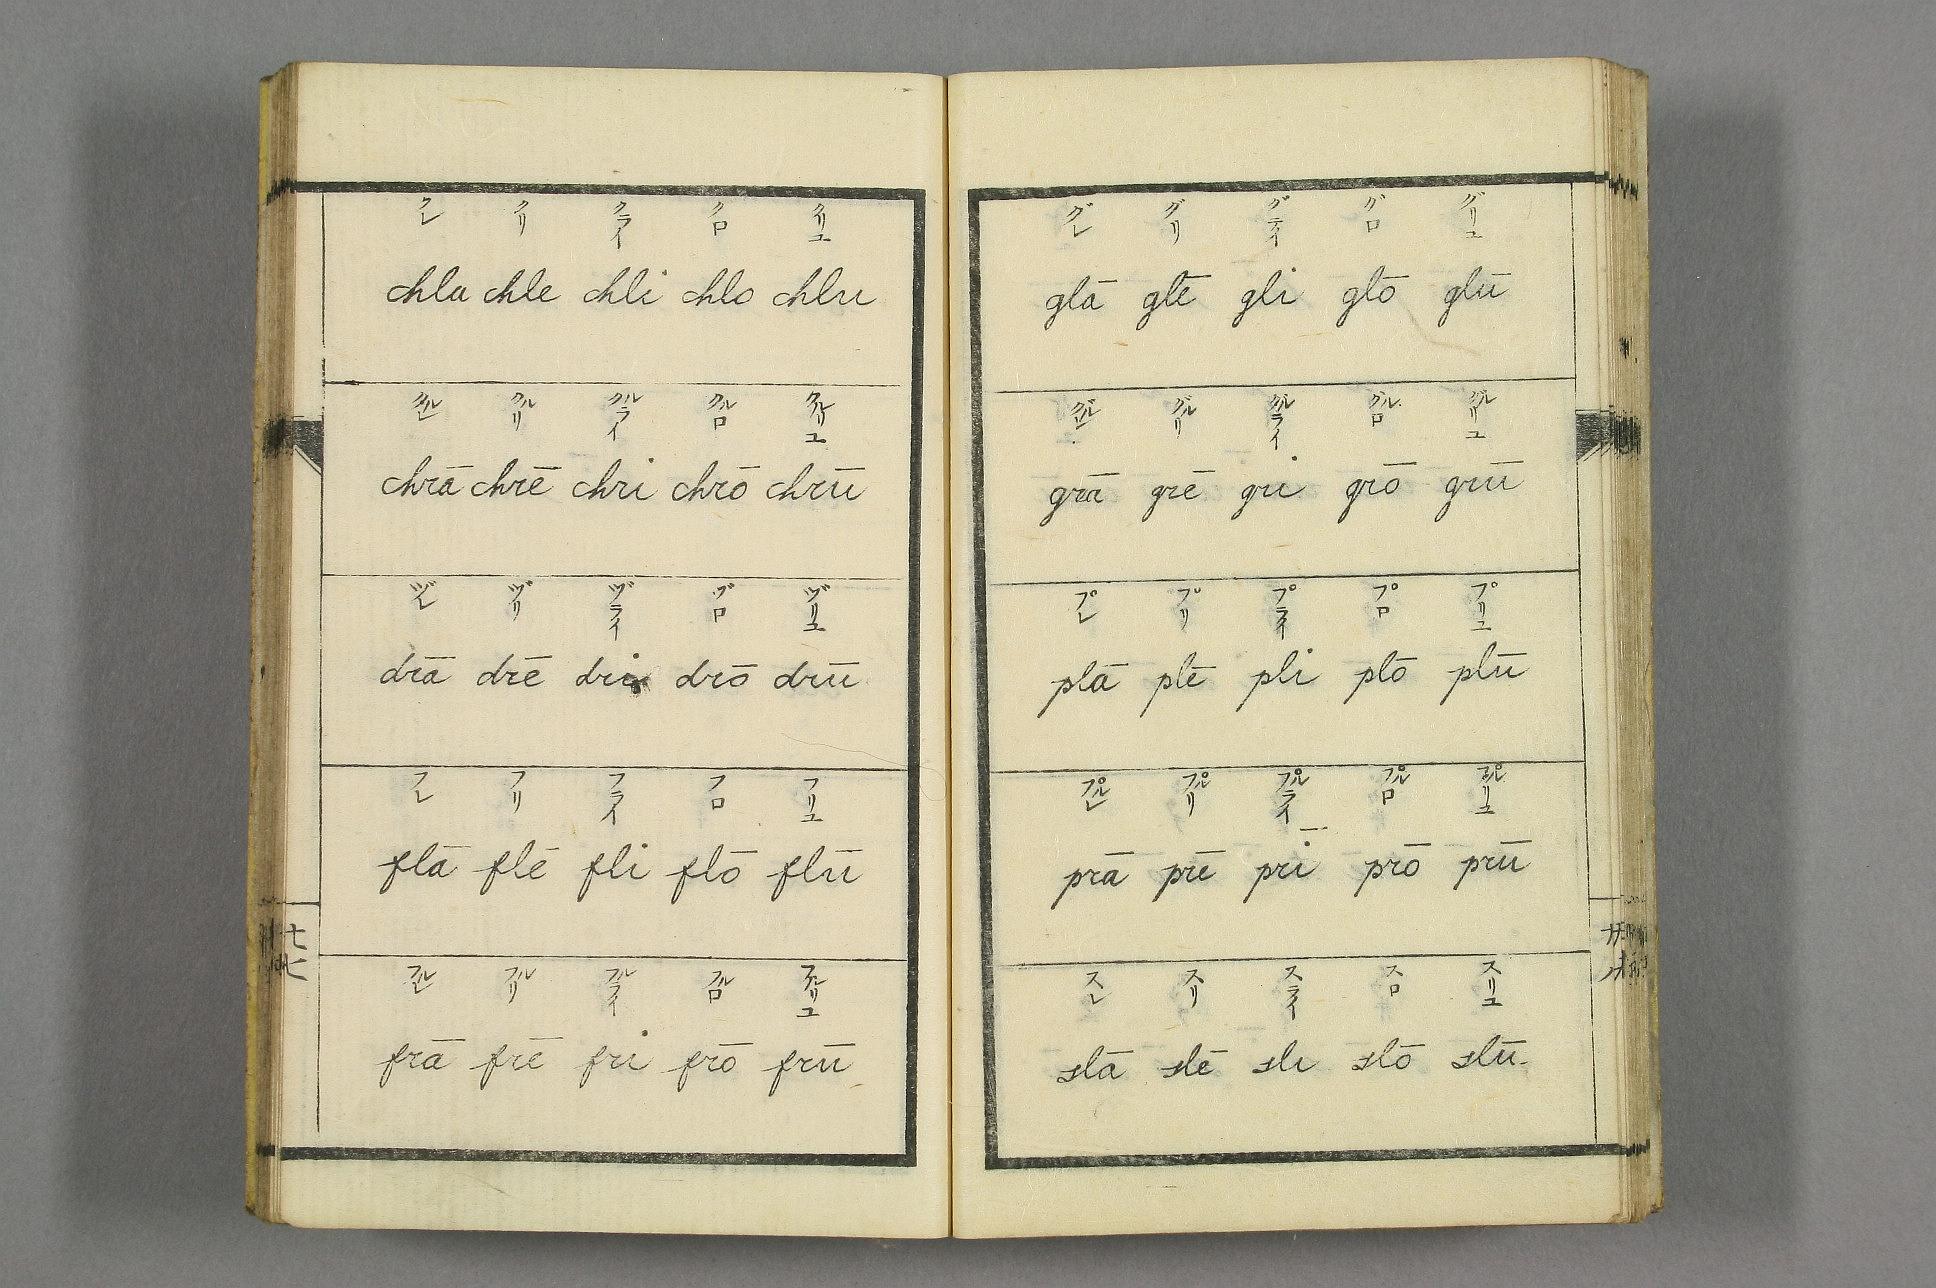 クレ クリ クライ クロ クリユ
chla chle chli chlo chlu
クルレ クルリ クルライ クルロ クルリユ
chrā chrē chri chrō chrū
ヅレ ヅリ ヅライ ヅロ ヅリユ
drā drē dri drō drū
フレ フリ フライ フロ フリユ
flā flē fli flō flū
フルレ フルリ フルライ フルロ フルリユ
frā frē fri frō frū
七
グレ グリ グライ グロ グリユ
glā glē gli glō glū
グルレ グルリ グルライ グルロ グルリユ
grā grē gri grō grū
プレ プリ プライ プロ プリユ
plā plē pli plō plū
プルレ プルリ プルライ プルロ プルリユ
prā prē pri prō prū
スレ スリ スライ スロ スリユ
slā slē sli slō slū